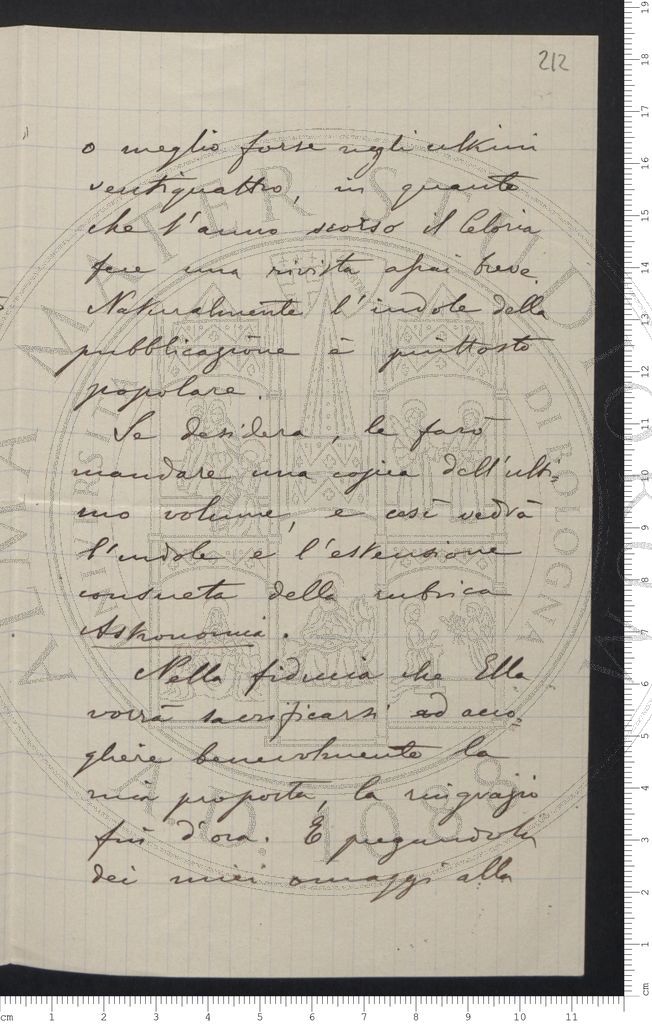 212
o meglio forse negli ultimi
ventiquattro, in quanto
che l'anno scorso il Celoria
fece una rivista assai breve.
Naturalmente l'indole della
pubblicazione è piuttosto
popolare.
Se desidera, le farò
mandare una copia dell'ulti=
mo volume, e così vedrà
l'indole e l'estensione
consueta della rubrica
Astronomia.
Nella fiducia che Ella
vorrà sacrificarsi ad acco=
gliere benevolmente la
mia proposta, la ringrazio
fin d'ora. E pregandola
dei miei omaggi alla
ALMA MATER STUDIORUM
UNIVERSITÀ DI BOLOGNA
A.D. 1088